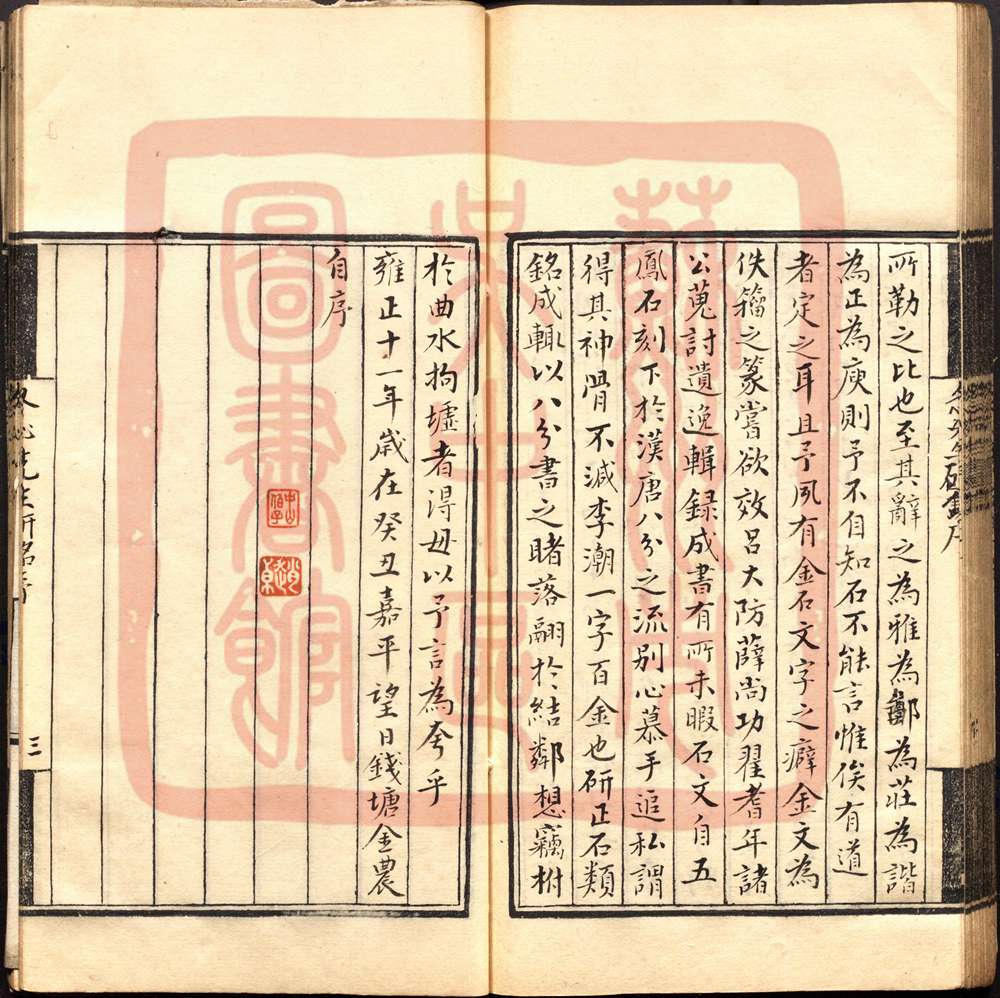 所勒之比也至其辭之為雅為鄭為莊為諧
為正為庾則予不自知石不能言惟俟有道
者定之耳且予夙有金石文字之癖金文為
佚籀之篆嘗欲效呂大防薛尚功翟耆年諸
公蒐討遺逸輯録成書有所未暇石文自五
鳳石刻下於漢唐八分之流别心慕手追私謂
得其神骨不減李潮一字百金也研正石類
銘成輒以八分書之睹落翮於結鄰想竊柎
於曲水拘墟者得毋以予言為夸乎
雍正十一年歲在癸丑嘉平望日錢塘金農
自序
三
圖書館